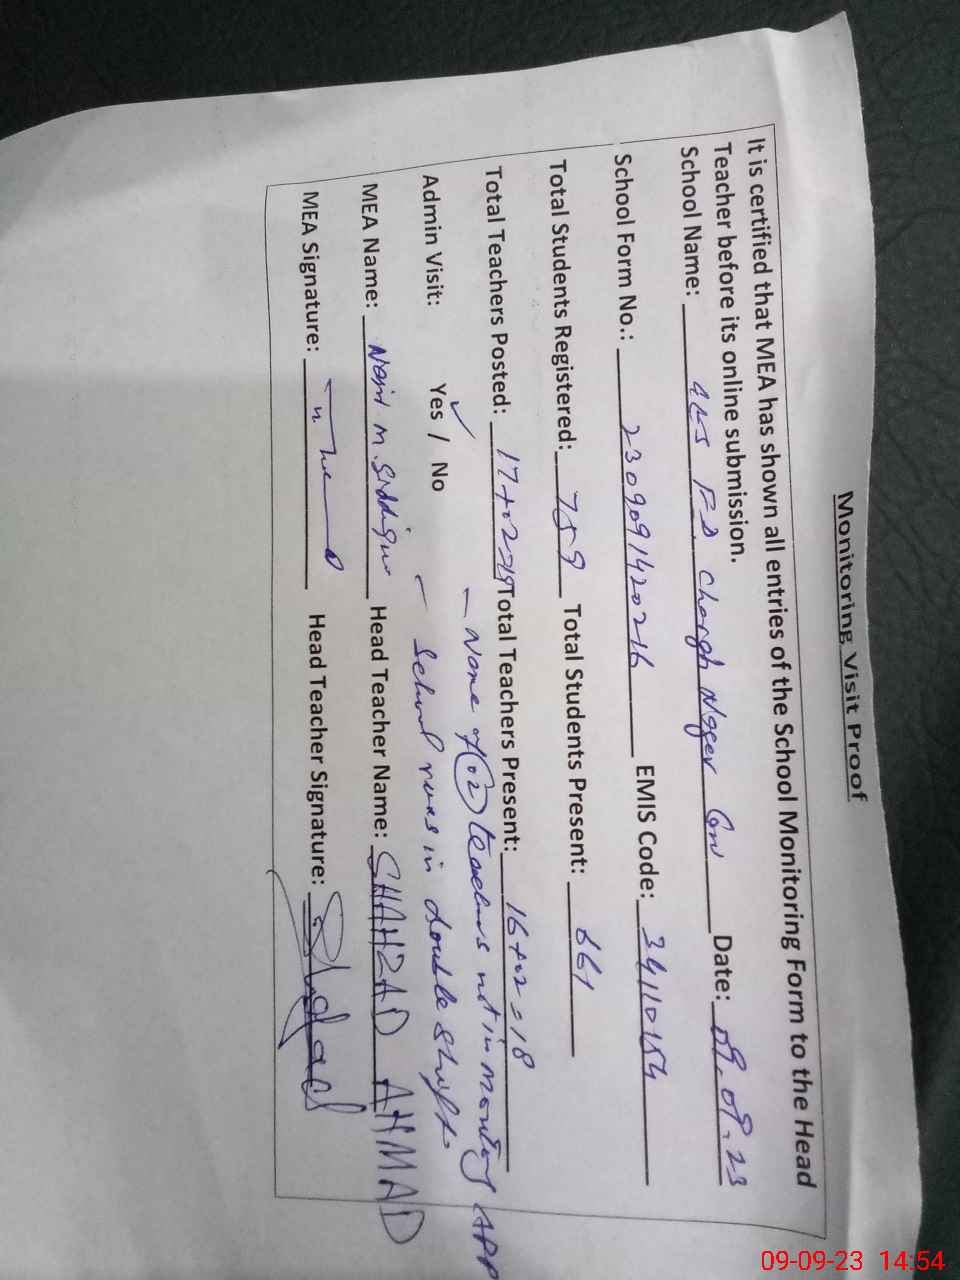 Monitoring Visit Proof
It is certified that MEA has shown all entries of the School Monitoring Form to the Head
Teacher before its online submission.
School Name: P.D. Charagh Nager Date: 09.09.23
School Form No.: 2309091420216 EMIS Code: 34110154
Total Students Registered: 759 Total Students Present: 661
Total Teachers Posted: 17+02=19 Total Teachers Present: 16+02=18
- Name of 02 teachers not in monitoring APP
Admin Visit: Yes / No
- School runs in double shift
MEA Name: M. Siddique Head Teacher Name: SHAHZAD AHMAD
MEA Signature: Head Teacher Signature: Shahzad
09-09-23 14:54